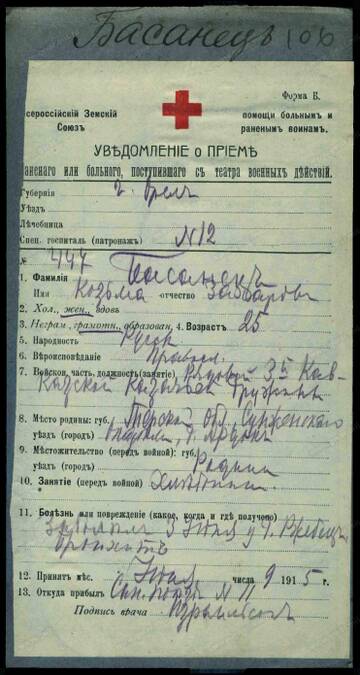 Басанецъ 106
Форма Б.
сероссійскій Земскій
помощи больнымъ и
Союзъ
раненымъ воинамъ.
УВѢДОМЛЕНІЕ о ПРІЕМѢ
аненаго или больного, поступившаго съ театра военныхъ дѣйствій.
Губернія г. Орелъ
Уѣздъ
Лѣчебница
Спец. госпиталь (патронажъ) N12
№ 447
1. Фамилія Басанецъ
Имя Козьма отчество Захаровъ
2. Хол., жен., вдовъ
3. Неграм., грамотн., образован. 4. Возрастъ 25
5. Народность Русск
6. Вѣроисповѣданіе Правосл.
7. Войсков. часть, должность (занятіе) Рядовой 3й Кав-
казской казачьей Дружины
8. Мѣсто родины: губ. Терской обл. Сунженскаго
уѣздъ (городъ)
9. Мѣстожительство (передъ войной): губ.
уѣздъ (городъ) Родина
10. Занятіе (передъ войной)
11. Болѣзнь или поврежденіе (какое, когда и гдѣ получено)
Заболѣлъ 3 Іюня у
бронхитъ
12. Принятъ мѣс. Іюня числа 9 1915 г.
13. Откуда прибылъ Сан. поѣздъ N 11
Подпись врача